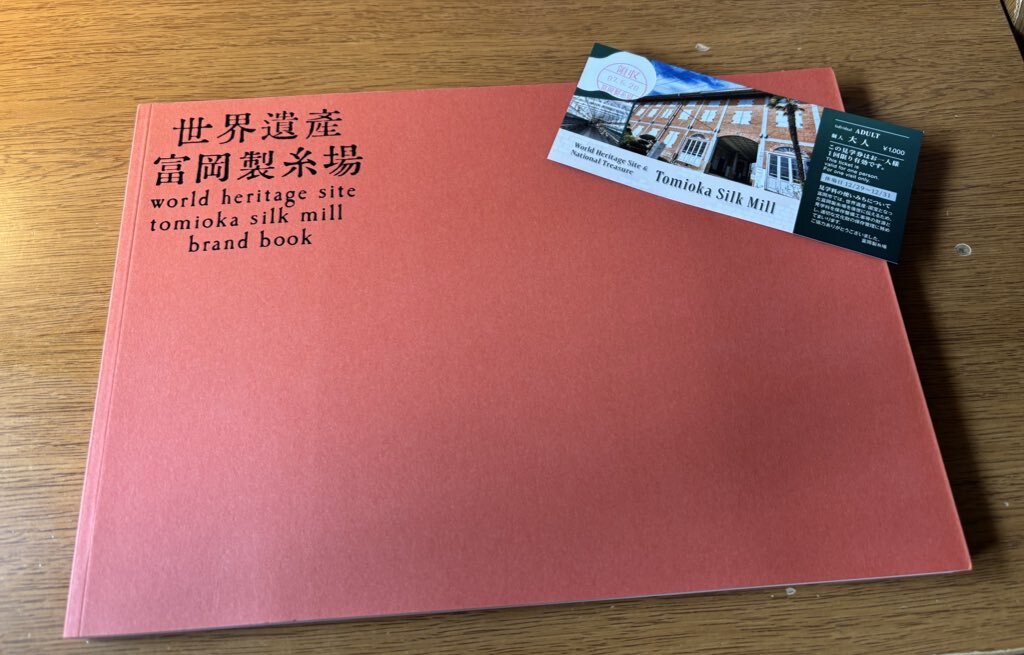 世界遺産
富岡製糸場
world heritage site
tomioka silk mill
brand book
領収
World Heritage Site &
National Treasure
Tomioka Silk Mill
Individual ADULT
個人 大人 ¥1,000
この見学券はお一人様
1回限り有効です。
This ticket is
valid for one person.
For one visit only.
休場日 12/29~12/31
見学料の使いみちについて
ご協力ありがとうございました。
富岡製糸場